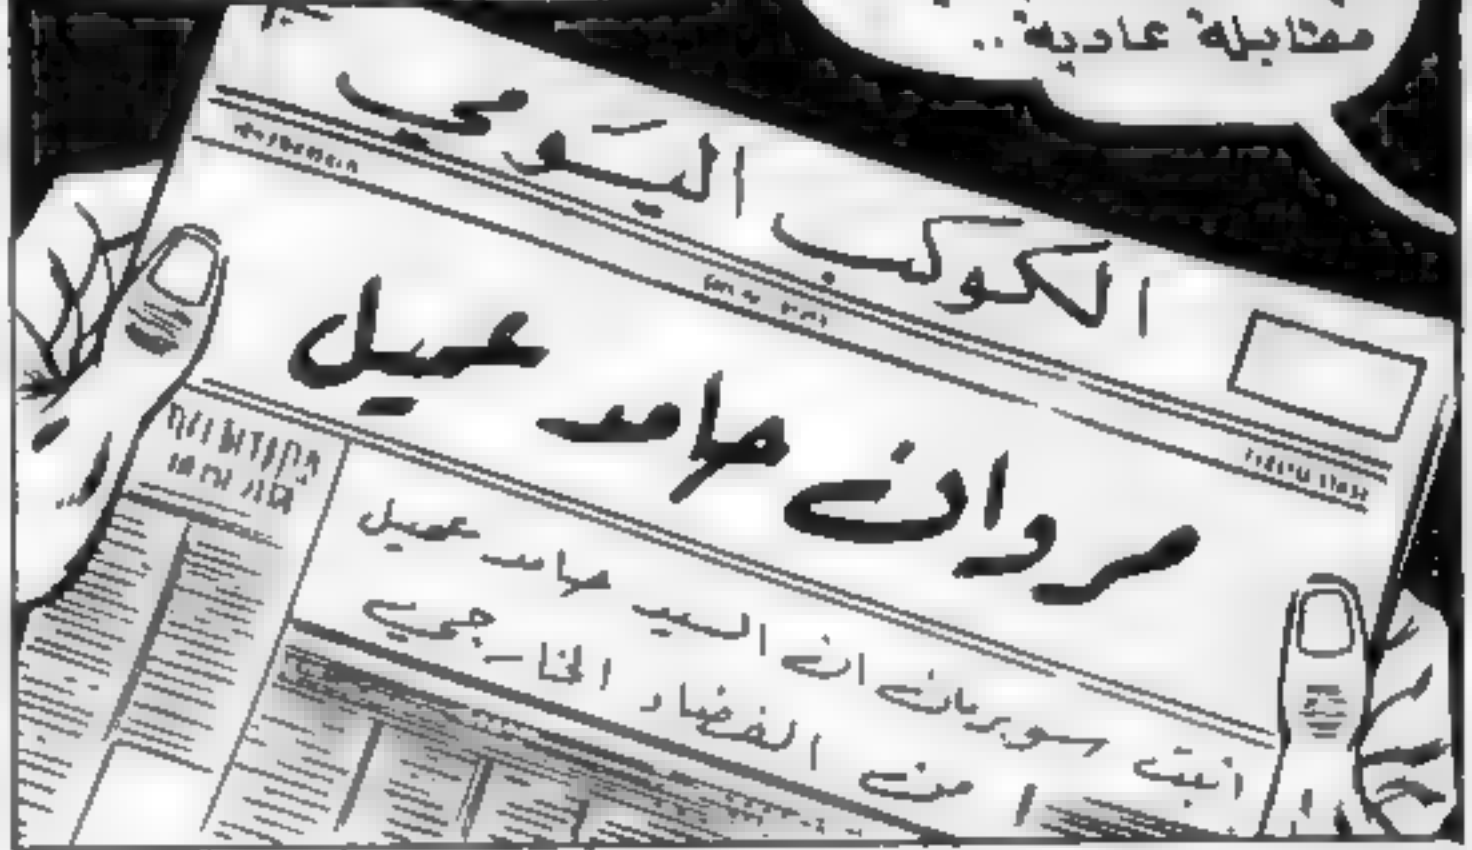 مقابلة عادية..
الكوكب اليَومي
مروان حامد عميل
اثبت سوبرمان ان السيد حامد عميل
من الفضاء الخارجي